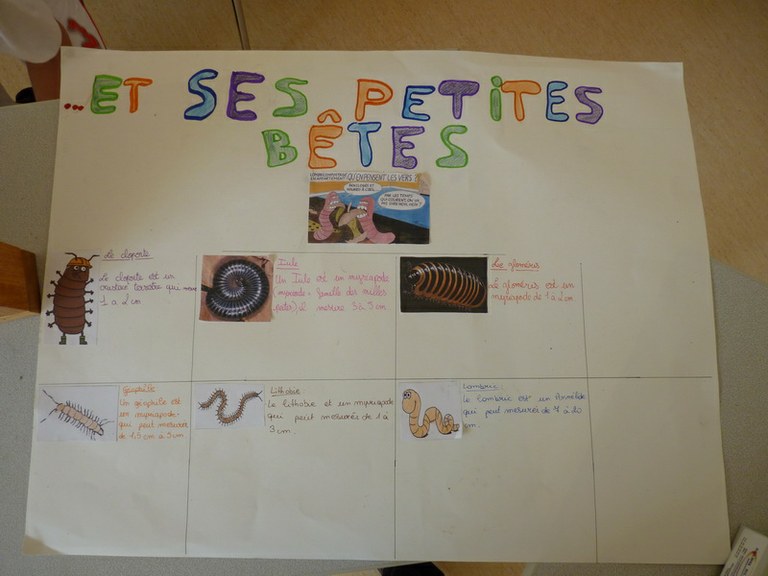 ...ET SES PETITES
BÊTES
QU'EN PENSENT LES VERS ?
Le cloporte
Le cloporte est un
crustacé terrestre qui mesure
1 a 2 cm
Iule
Un Iule est un myriapode
(myriapode = famille des milles
pates) il mesure 3 à 5 cm
Le gloméris
Le gloméris est un
myriapode de 1 a 2 cm
Géophile
Un géophile est
un myriapode
qui peut mesurer
de 1.5 cm a 5 cm
Lithobie
Le lithobie et un myriapode
qui peut mesurer de 1 à
3 cm.
Lombric
Le lombric est un Annélide
qui peut mesurer de
cm.